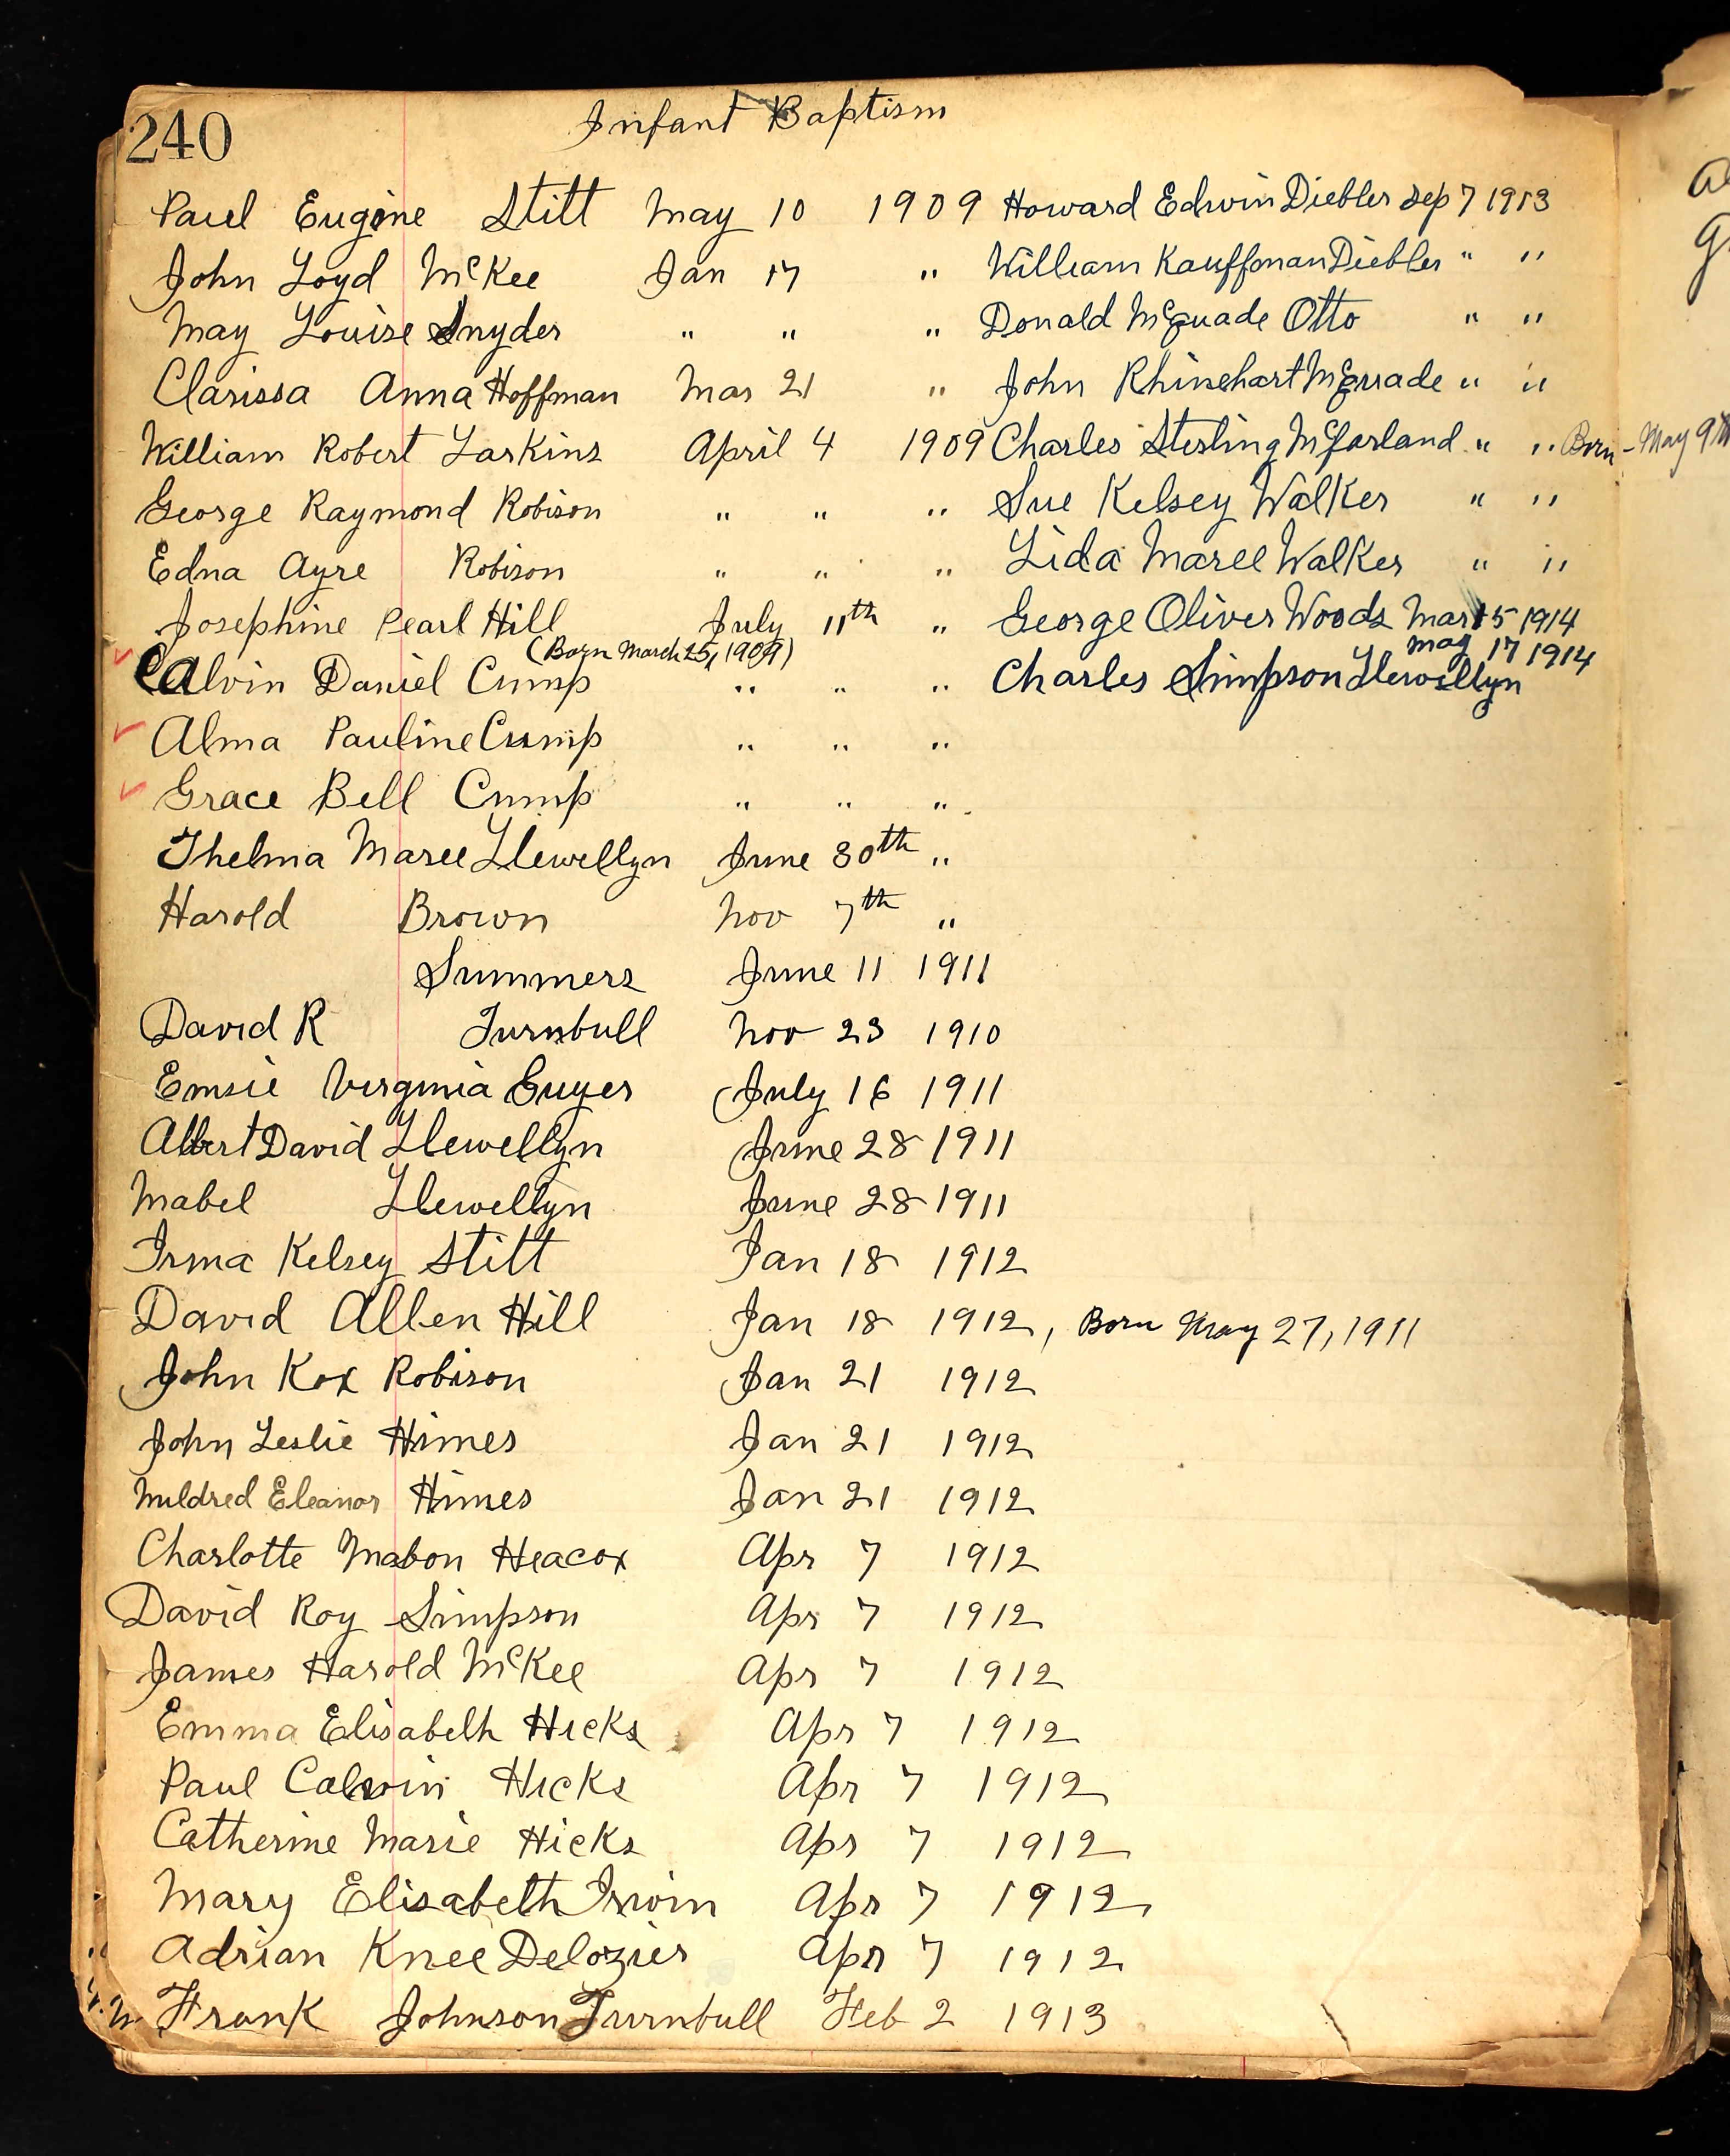 240
Infant Baptism
Paul Eugene Stitt May 10 1909
John Loyd McKee Jan 17 "
May Louise Snyder " " "
Clarissa Anna Hoffman Mar 21 "
William Robert Larkins April 4 1909
George Raymond Robison " " "
Edna Ayre Robison " " "
Josephine Pearl Hill July 11th "
(Born March 25, 1909)
Calvin Daniel Crump " " "
Alma Pauline Crump " " "
Grace Bell Crump " " "
Thelma Maree Llewellyn June 30th "
Harold Brown Nov 7th "
Summers June 11 1911
David R Turnbull Nov 23 1910
Emsie Virginia Guyer July 16 1911
Albert David Llewellyn June 28 1911
Mabel Llewellyn June 28 1911
Irma Kelsey Stitt Jan 18 1912
David Allen Hill Jan 18 1912, Born May 27, 1911
John Kox Robison Jan 21 1912
John Leslie Himes Jan 21 1912
Mildred Eleanor Himes Jan 21 1912
Charlotte Mabon Heacox Apr 7 1912
David Roy Simpson Apr 7 1912
James Harold McKee Apr 7 1912
Emma Elisabeth Hicks Apr 7 1912
Paul Calvin Hicks Apr 7 1912
Catherine Marie Hicks Apr 7 1912
Mary Elisabeth Irwin Apr 7 1912
Adrian Knee Delozier Apr 7 1912
Frank Johnson Turnbull Feb 2 1913
Howard Edwin Diebler Sep 7 1913
William Kauffman Diebler " "
Donald McQuade Otto " "
John Rhinehart McQuade " "
Charles Sterling McFarland " " Born - May 9th
Sue Kelsey Walker " "
Lida Maree Walker " "
George Oliver Woods Mar 15 1914
May 17 1914
Charles Simpson Llewellyn